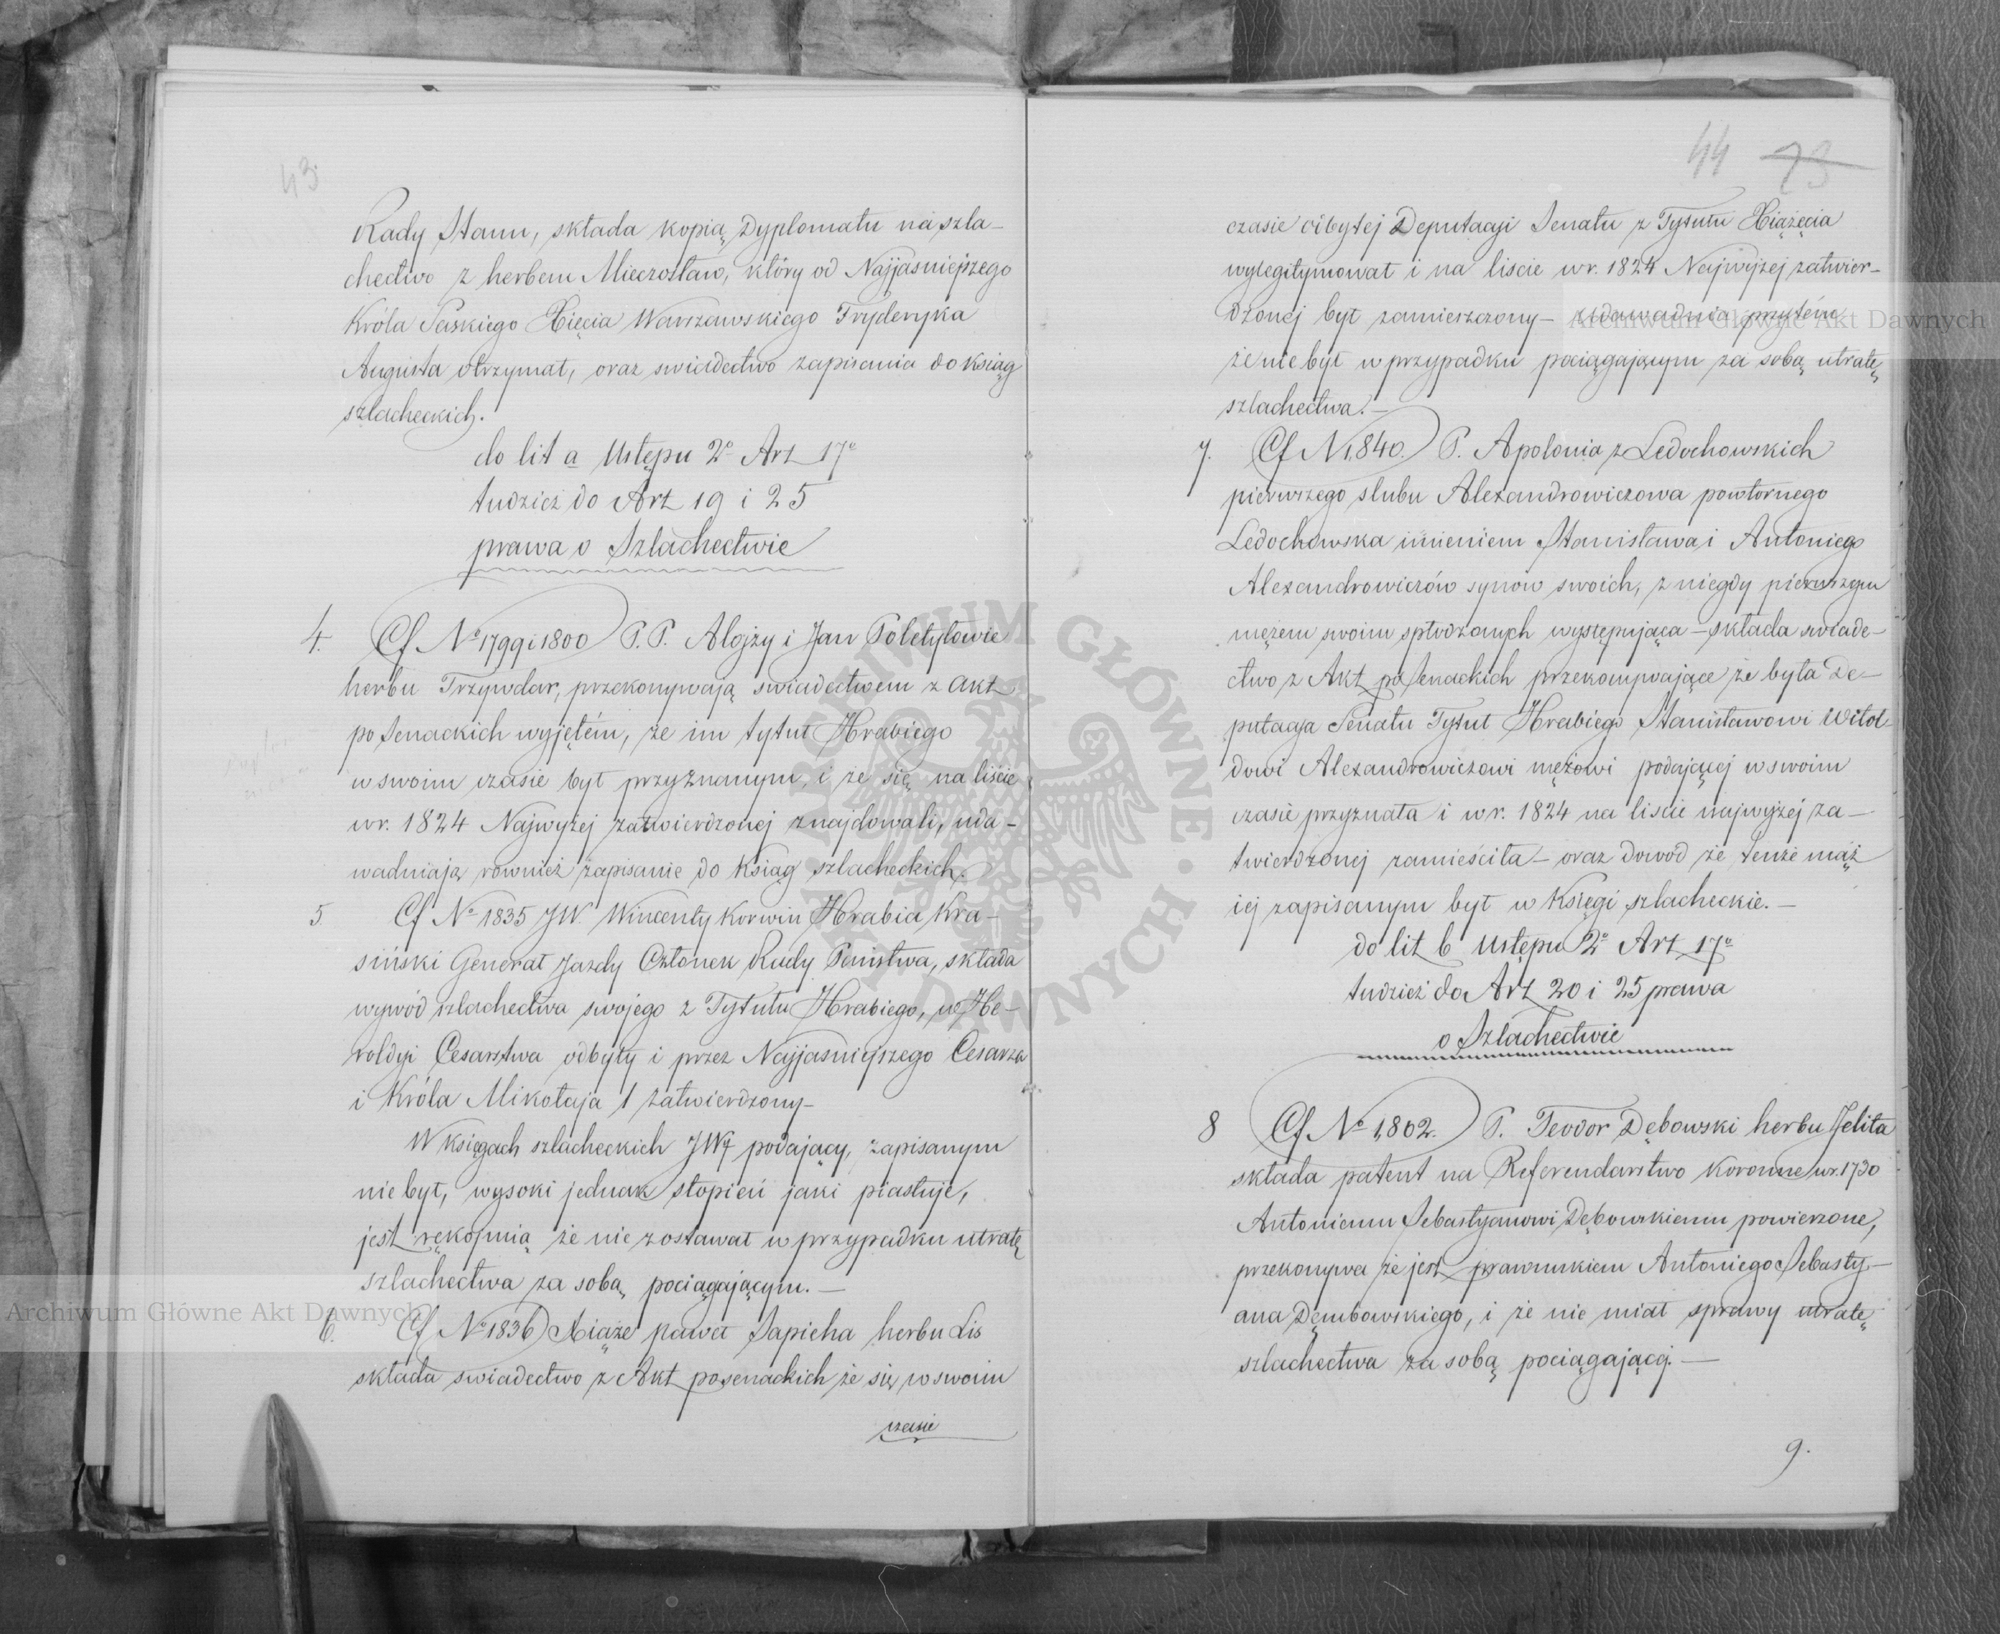 43
Rady Stanu, składa kopią Dyplomatu na szla-
chectwo z herbem Mieczosław, który od Najjaśniejszego
Króla Saskiego Xięcia Warszawskiego Fryderyka
Augusta otrzymał, oraz swiadectwo zapisania do ksiąg
szlacheckich.
do lit a Ustępu 2o Art 17o
tudzież do Art 19 i 25
prawa o Szlachectwie
4. Cf No 1799 i 1800 P.P. Alojzy i Jan Poletyłowie
herbu Trzywdar, przekonywają swiadectwem z akt
po Senackich wyjętém, że im tytuł Hrabiego
w swoim czasie był przyznanym, i że się na liście
w r. 1824 Najwyżej zatwierdzonej znajdowali, uda-
wadniają rownież zapisanie do ksiąg szlacheckich.
5 Cf No 1835 JW. Wincenty Korwin Hrabia Kra-
siński Generał Jazdy Członek Rady Państwa, składa
wywód szlachectwa swojego z Tytułu Hrabiego, w He-
roldyi Cesarstwa odbyty i przez Najjaśniejszego Cesarza
i Króla Mikołaja 1 zatwierdzony-
W księgach szlacheckich JW podający, zapisanym
nie był, wysoki jednak stopień jaki piastuje,
jest rękojmią że nie zostawał w przypadku utratę
szlachectwa za sobą pociągającym.-
6. Cf No 1836 Xiąże Paweł Sapieha herbu Lis
składa swiadectwo z Akt posenackich że się w swoim
czasie
44 73
czasie w byłej Deputacyi Senatu z Tytułu Xiążęcia
wylegitymował i na liscie w r. 1824 Najwyżej zatwier-
dzonej był zamieszczony- udawadnia przytém
że nie był w przypadku pociągającym za sobą utratę
szlachectwa.-
7. Cf N 1,840. P. Apolonia z Ledochowskich
pierwszego slubu Alexandrowiczowa powtornego
Ledochowska imieniem Stanisława i Antoniego
Alexandrowiczów synów swoich, z niegdy pierwszym
mężem swoim spłodzonych występująca - składa swiade-
ctwo z Akt po Senackich przekonywające że była De-
putacya Senatu Tytuł Hrabiego Stanisławowi Witol
dowi Alexandrowiczowi mężowi podającej w swoim
czasie przyznała i w r. 1824 na liscie najwyżej za-
twierdzonej zamieściła - oraz dowód że tenże mąż
jej zapisanym był w Księgi szlacheckie.-
do lit b Ustępu 2o Art 17o
tudzież do Art 20 i 25 prawa
o Szlachectwie
8 Cf No 1,802. P. Teodor Dębowski herbu Jelita
składa patent na Referendarstwo Koronne w r. 1730
Antoniemu Sebastyanowi Dębowskiemu powierzone,
przekonywa że jest prawnukiem Antoniego Sebasty-
ana Dembowskiego, i że nie miał sprawy utratę
szlachectwa za sobą pociągającej.-
9.
Archiwum Główne Akt Dawnych
Archiwum Główne Akt Dawnych
ARCHIWUM GŁÓWNE AKT DAWNYCH